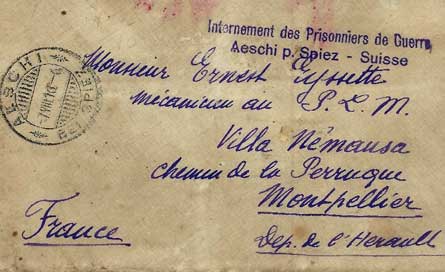 Internement des Prisonniers de Guerre
Aeschi p. Spiez - Suisse
AESCHI
Monsieur Ernest Eyssette
mécanicien au P.L.M.
Villa Némausa
chemin de la Perruque
Montpellier
France
Dep. de l'Herault